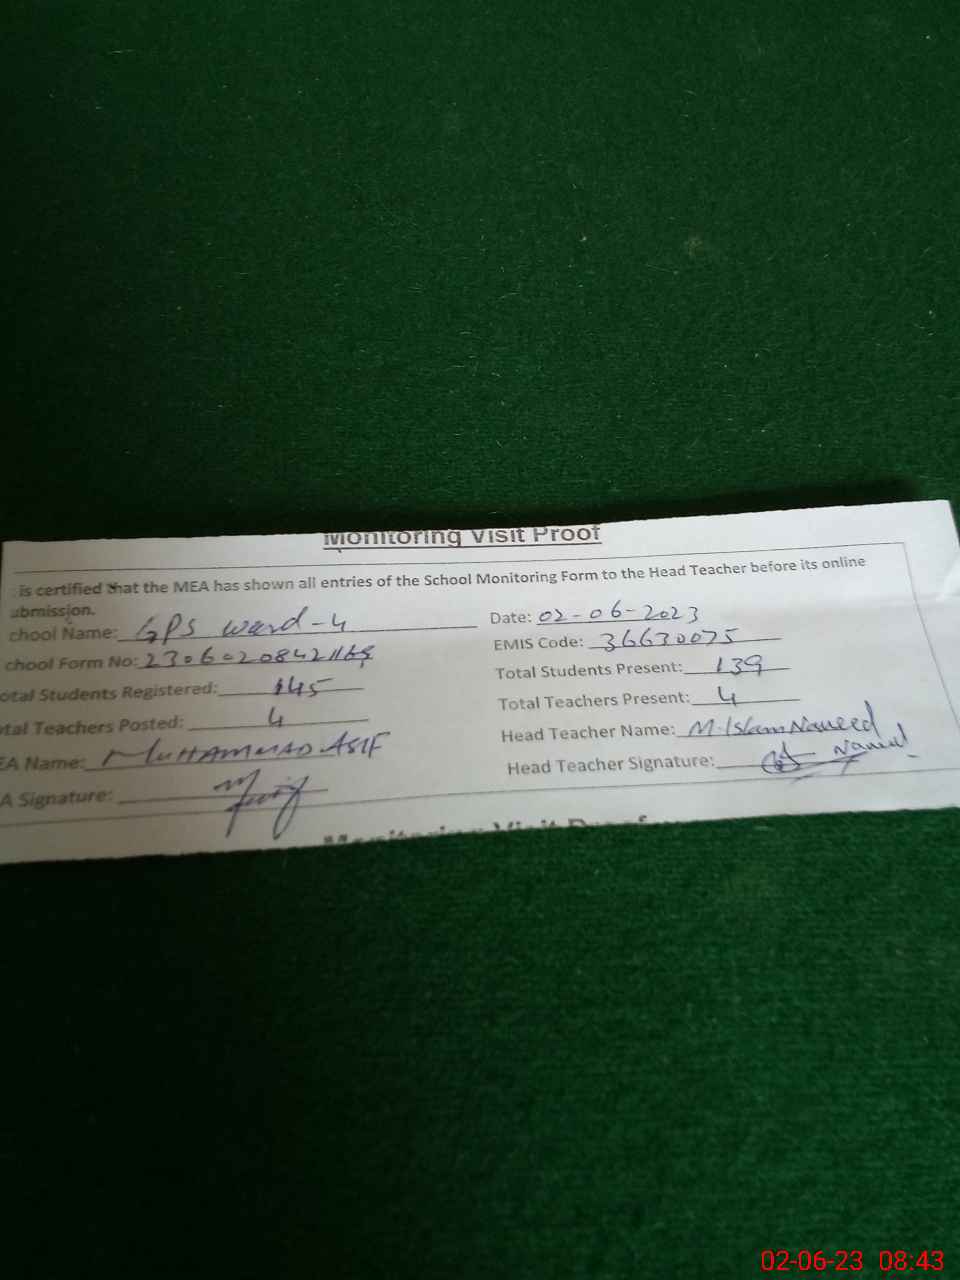 Monitoring Visit Proof
is certified that the MEA has shown all entries of the School Monitoring Form to the Head Teacher before its online
ubmission.
chool Name: GPS ward-4 Date: 02-06-2023
chool Form No: EMIS Code: 36630075
otal Students Registered: 145 Total Students Present: 139
tal Teachers Posted: 4 Total Teachers Present: 4
EA Name: MUHAMMAD ASIF Head Teacher Name: M. Islam Naveed
A Signature: Head Teacher Signature: Naveed
Monitoring Visit Proof
02-06-23 08:43